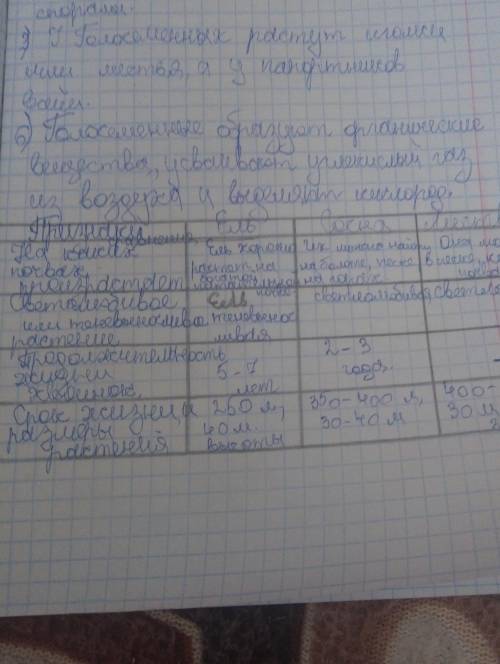 спорами.
5) У Голосеменных растут иголки
или листья, а у папортников
вайи.
6) Голосеменные образуют органические
вещества, усваивают углекислый газ
из воздуха и выделяют кислород.
Признаки сравнения Ель Сосна
На каких почвах произрастает
Ель хорошо растёт на
Светолюбивое или теневыносливое растение
Ель теневынос ливая
светолюбивая
Продолжительность жизни хвоинок
5-7 лет
2-3 года.
Срок жизни и размеры растений
250 л, 40 м. высоты
350-400 л, 30-40 м
400-
30 м